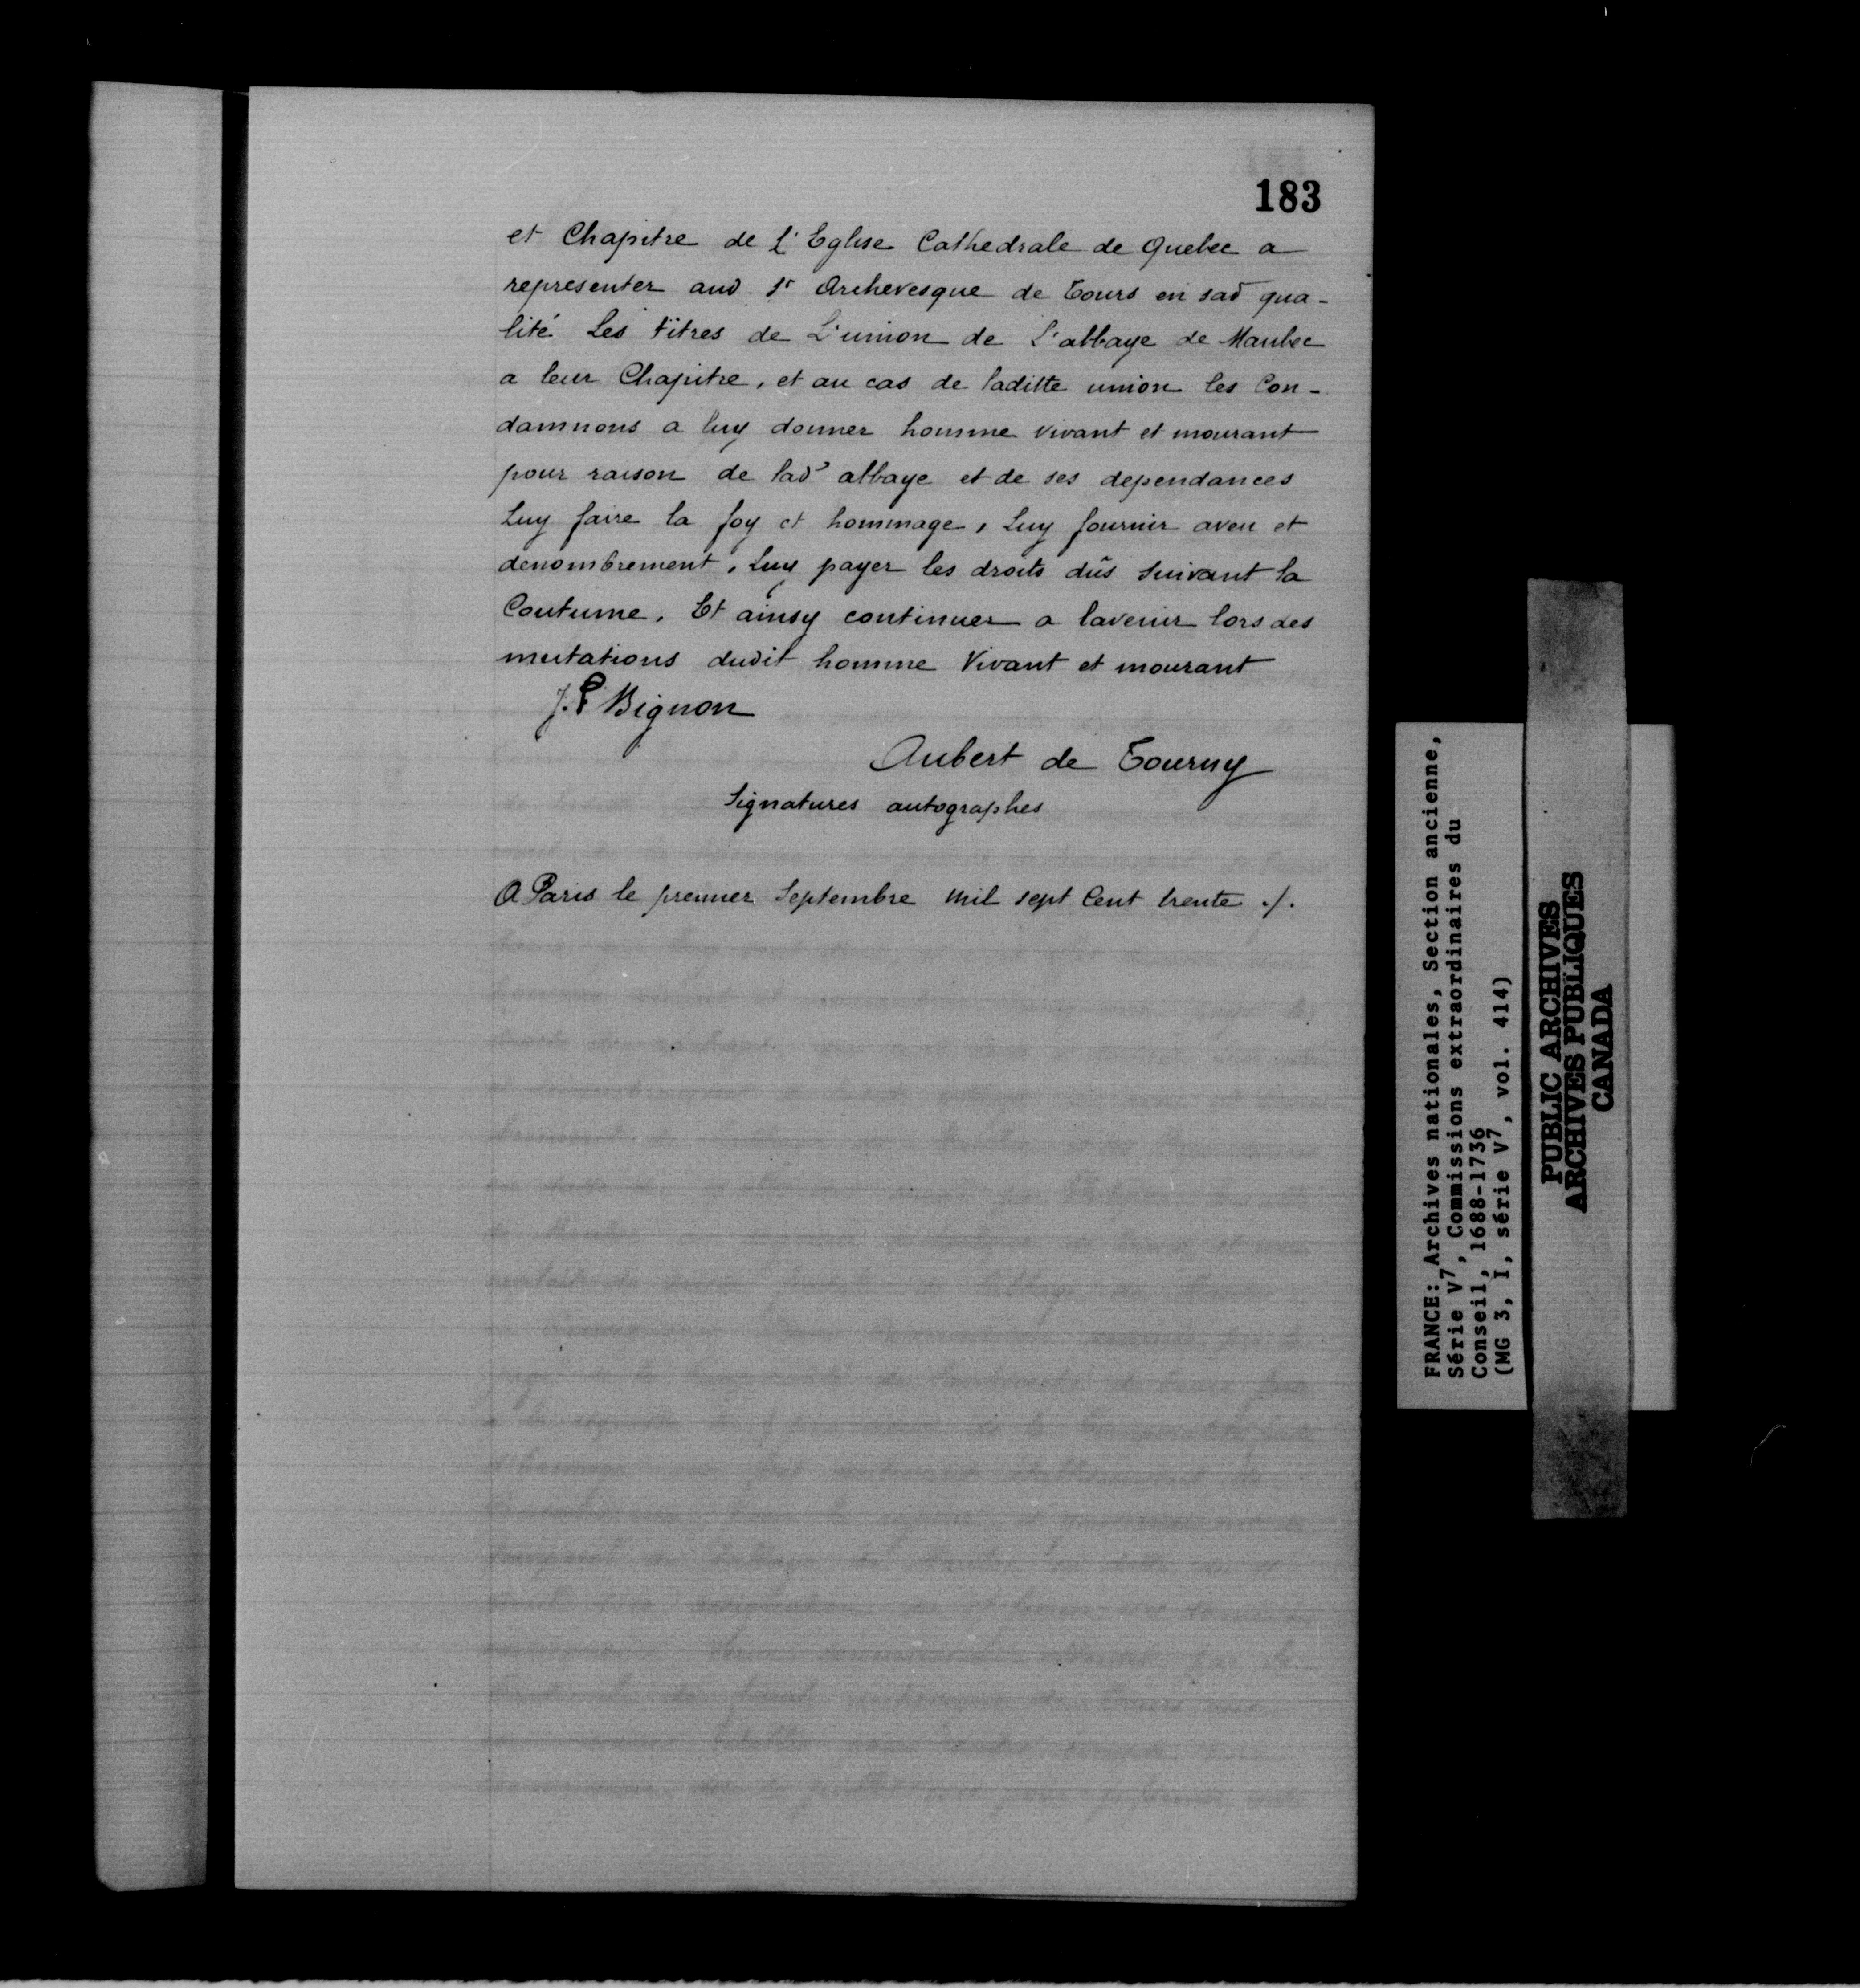 183
et Chapitre de L'Eglise Cathedrale de Quebec a
representer aud. Sr Archevesque de Tours en sad qua-
lité Les titres de L'union de L'abbaye de Maubec
a leur Chapitre, et au cas de laditte union les Con-
damnons a luy donner homme vivant et mourant
pour raison de lad' abbaye et de ses dependances
Luy faire la foy et hommage, Luy fournir aveu et
denombrement, Luy payer les droits dûs suivant la
Coutume. Et ainsy continuer a lavenir lors des
mutations dudit homme Vivant et mourant
J. P Bignon
Aubert de Tourny
Signatures autographes
A Paris le premier Septembre mil sept Cent trente ./.
FRANCE: Archives nationales, Section ancienne,
Série V7, Commissions extraordinaires du
Conseil, 1688-1736
(MG 3, I, série V7, vol. 414)
PUBLIC ARCHIVES
ARCHIVES PUBLIQUES
CANADA